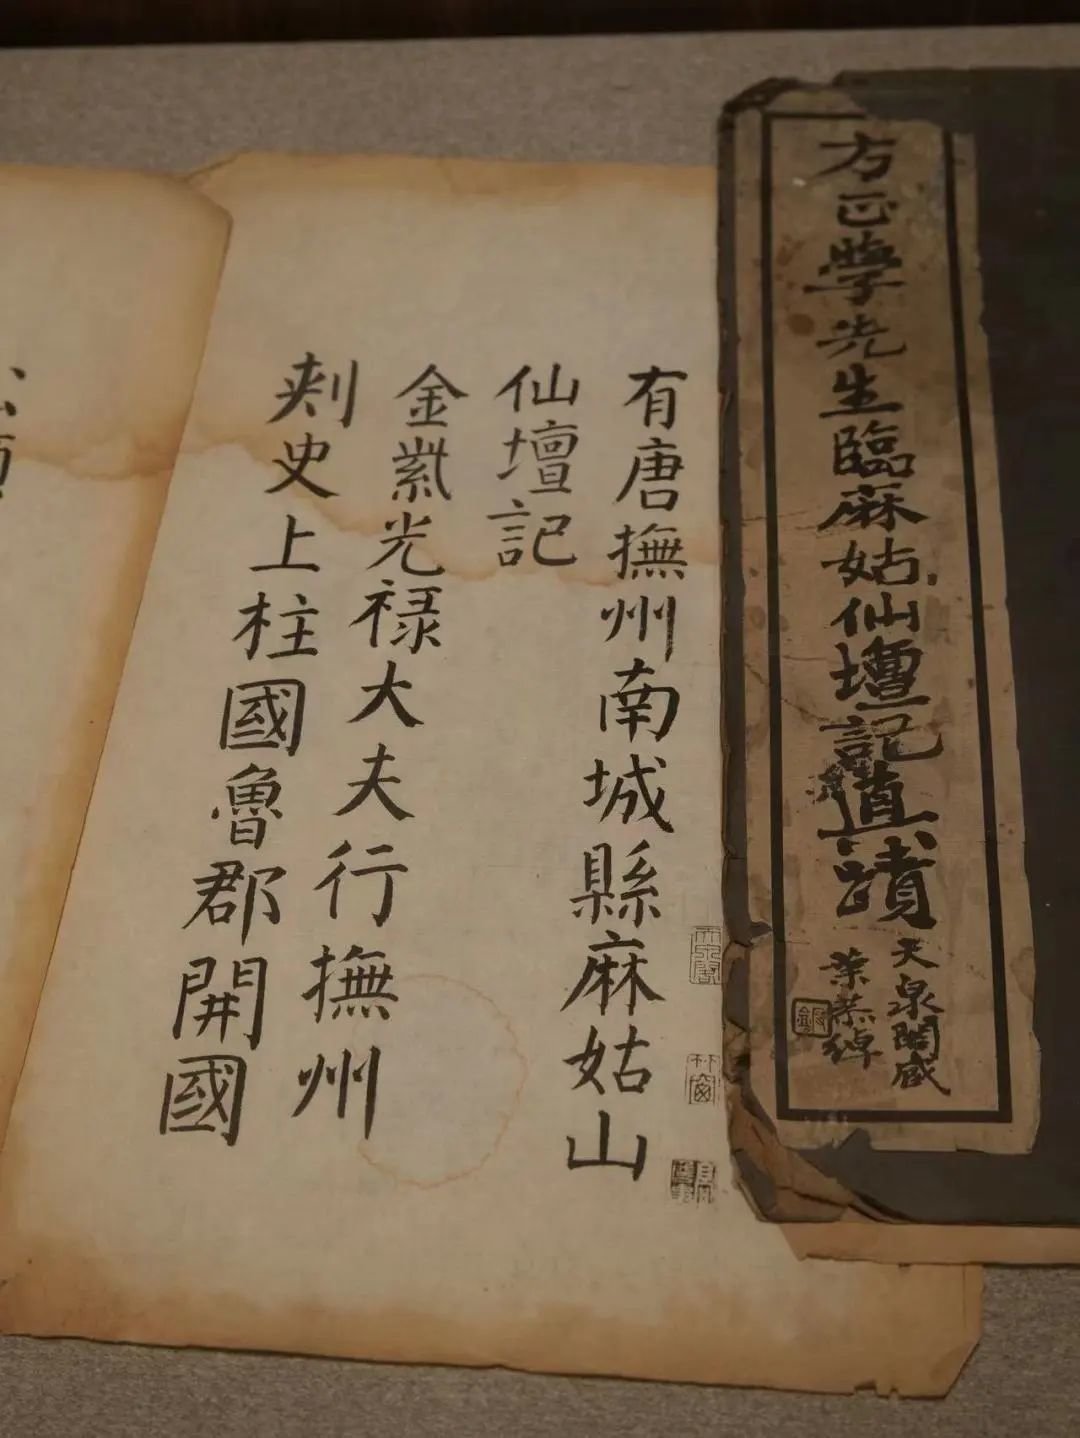 方正學先生臨麻姑仙壇記真蹟
天泉閣藏
葉恭綽
有唐撫州南城縣麻姑山
仙壇記
金紫光祿大夫行撫州
刺史上柱國魯郡開國